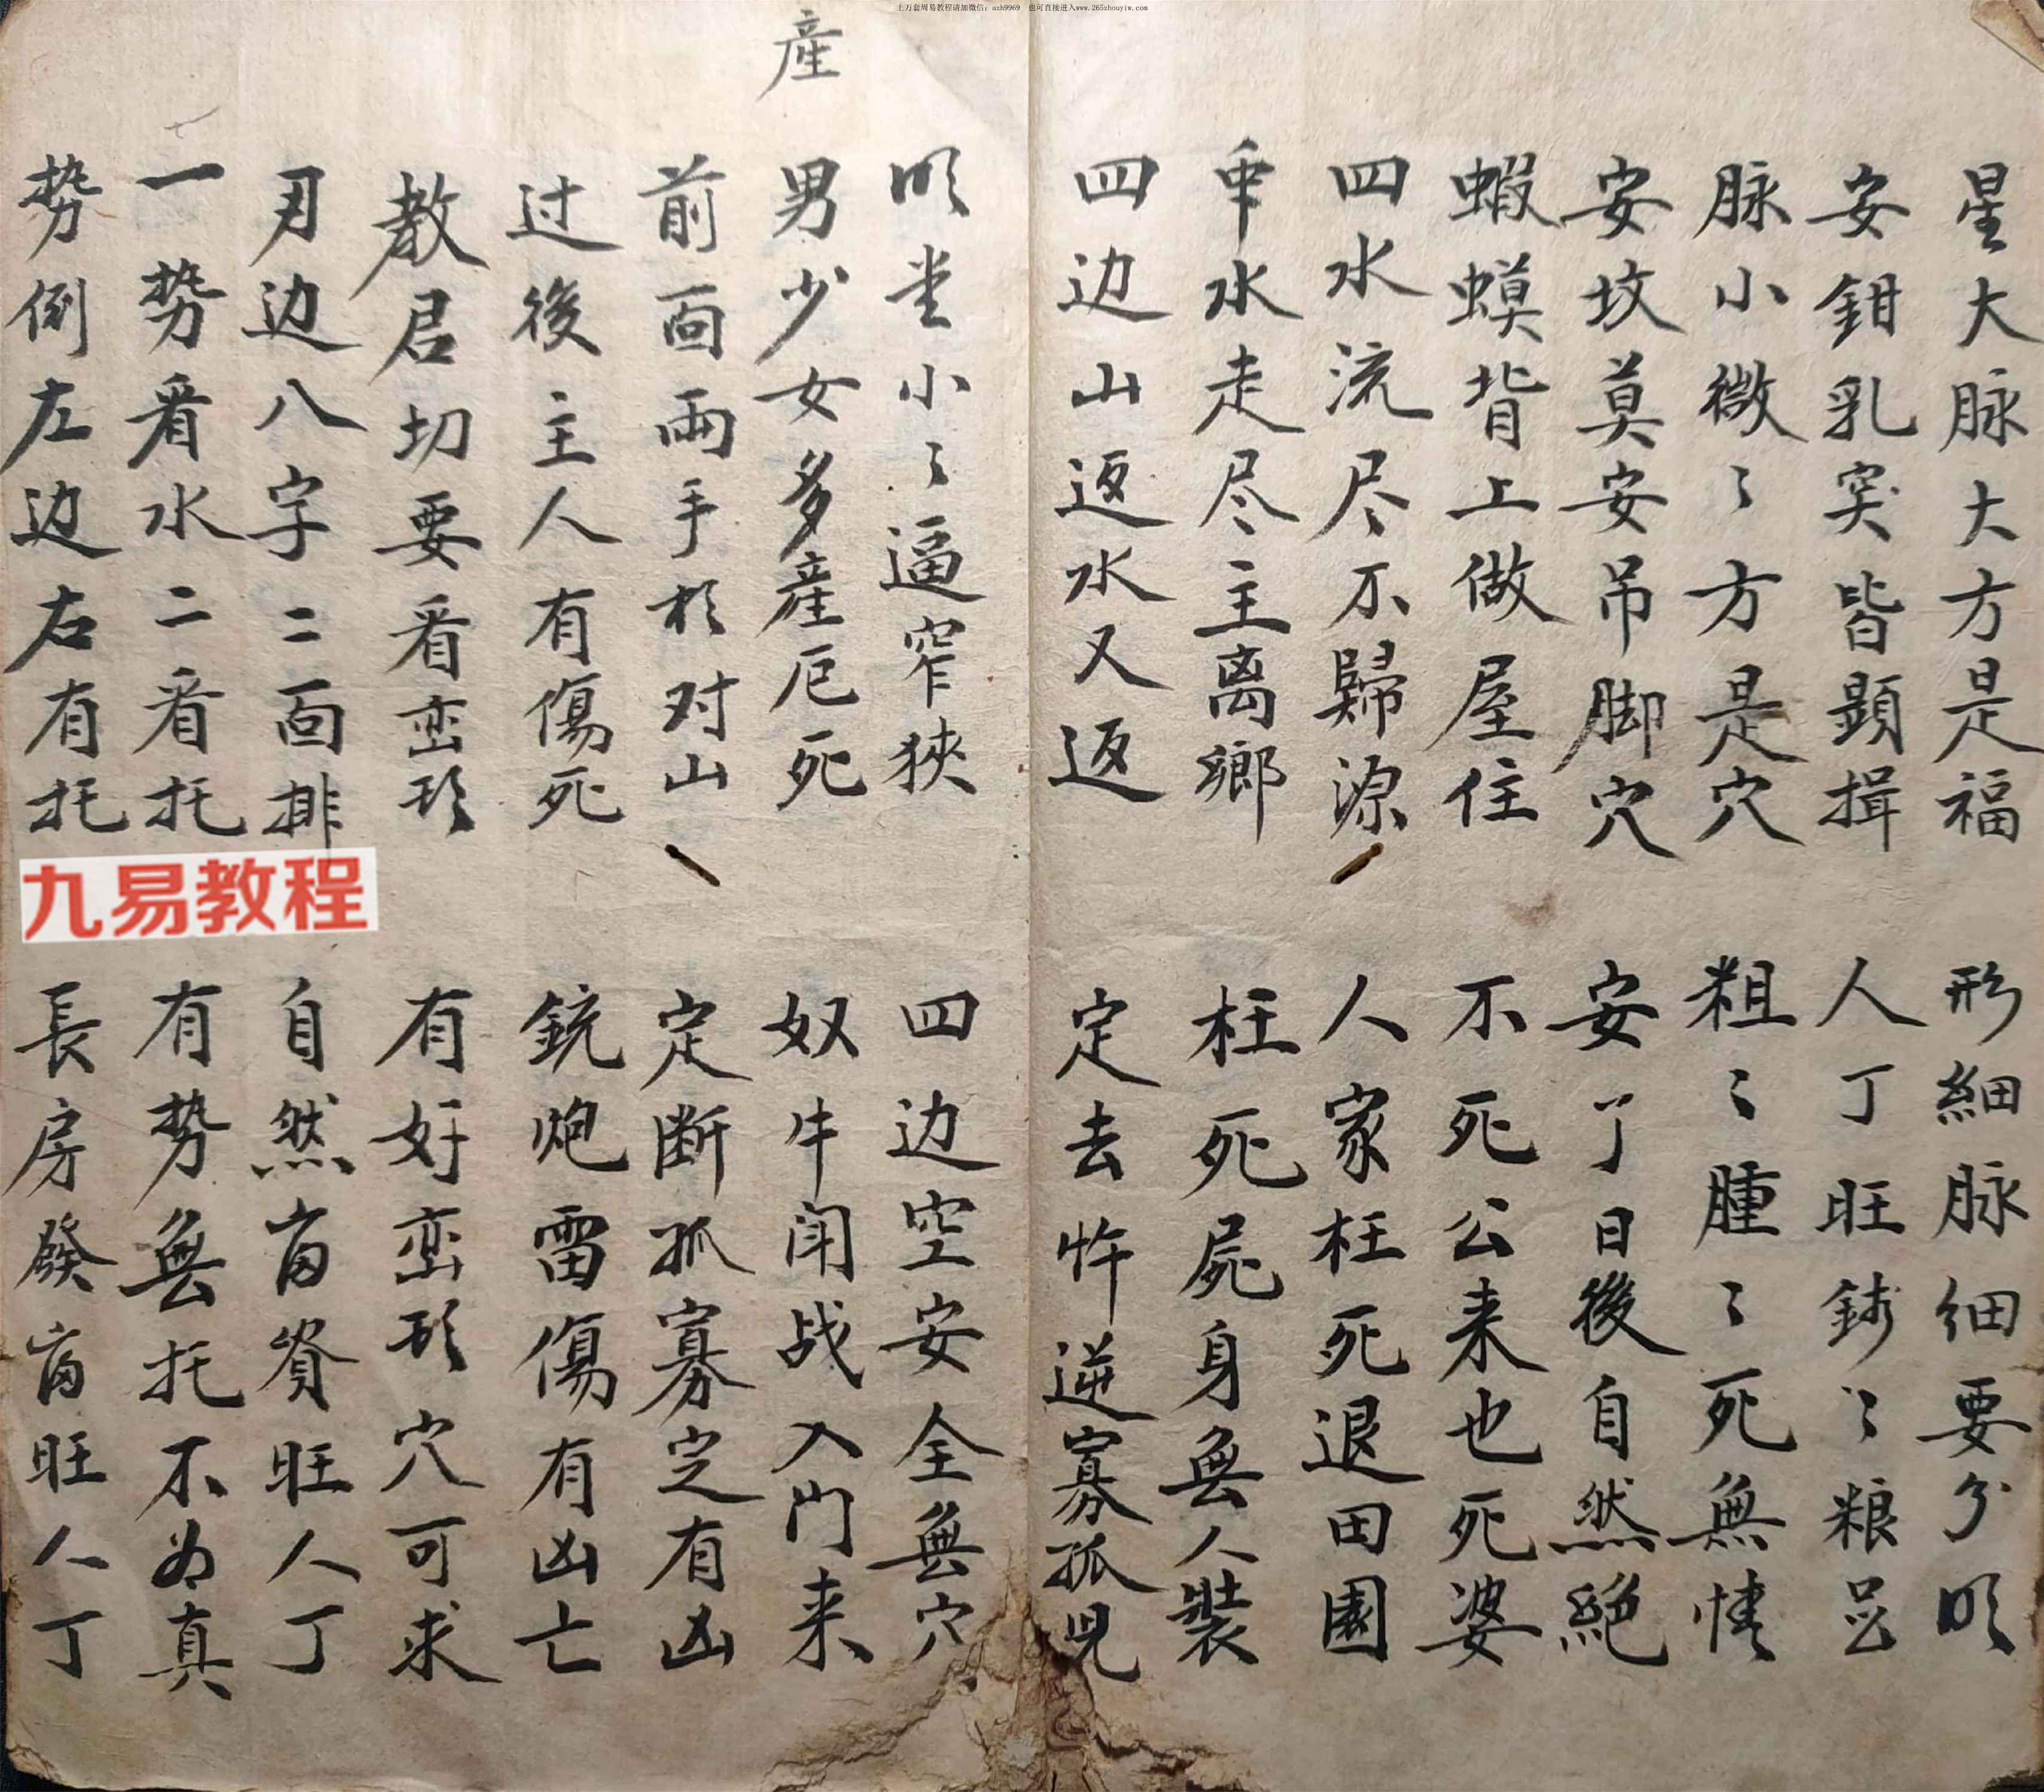 上万套周易教程请加微信：azh9969 也可直接进入www.265zhouyiw.com
星大脉大方是福 形細脉细要分明
安鉗乳突皆顕揖 人丁旺 粮
脉小微〻方是穴 粗〻腫〻死無情
安坟莫安吊脚穴 安了日後自然絕
蝦蟆背上做屋住 不死公来也死婆
四水流尽不歸源 人家枉死退田園
水走尽主离鄉 枉死屍身無人裝
四边山返水又返 定去忤逆寡孤児
明堂小〻逼窄狹 四边空安全無穴
男少女多產厄死 奴牛闻战入门来
產
前面両手於对山 定断孤寡定有凶
过後主人有傷死 銃炮雷傷有凶亡
教君切要看峦形 有好峦形穴可求
刃边八字二面排 自然畗資旺人丁
一势看水二看托 有势無托不为真
势倒左边右有托 長房發畗旺人丁
九易教程